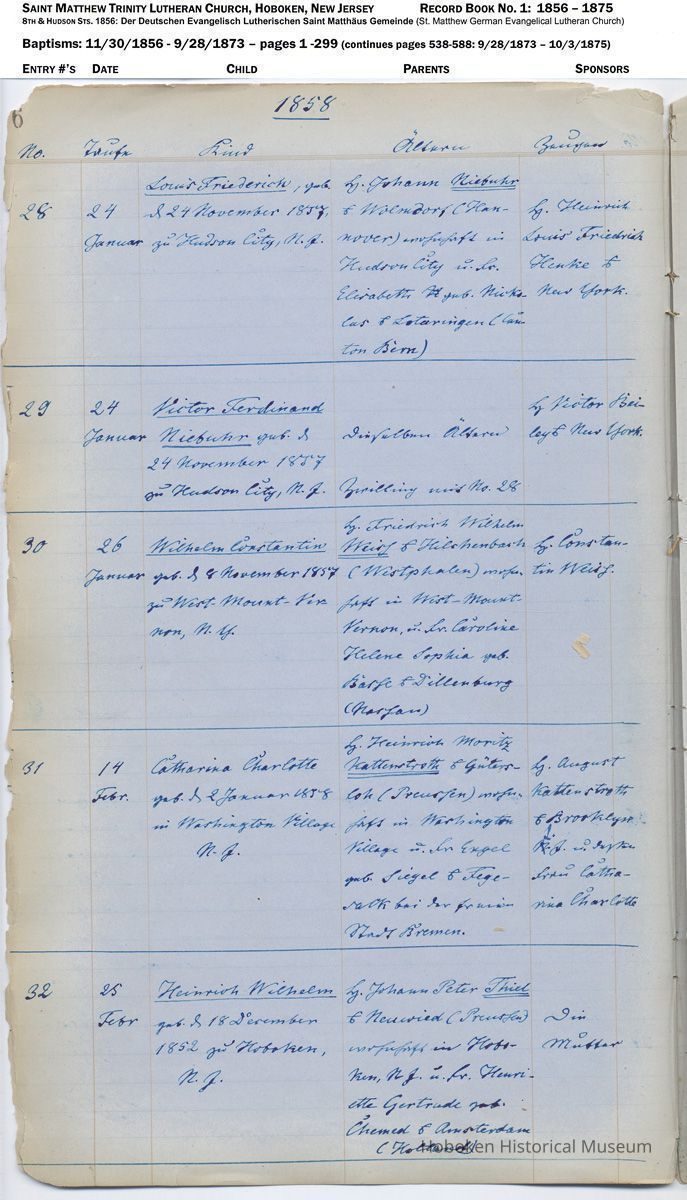 SAINT MATTHEW TRINITY LUTHERAN CHURCH, HOBOKEN, NEW JERSEY RECORD BOOK NO. 1: 1856 – 1875
8TH & HUDSON STS. 1856: Der Deutschen Evangelisch Lutherischen Saint Matthäus Gemeinde (St. Matthew German Evangelical Lutheran Church)
Baptisms: 11/30/1856 - 9/28/1873 – pages 1 -299 (continues pages 538-588: 9/28/1873 – 10/3/1875)
ENTRY #'S DATE CHILD PARENTS SPONSORS
6
1858
No. Taufe Kind Ältern Zeugen
28
24
Januar
Louis Friederich, geb.
d 24 November 1857,
zu Hudson City, N. J.
H. Johann Niebuhr
(Han-
nover) wohnhaft in
Hudson City u. Fr.
Elisabeth geb. Nicko-
las (Can-
ton Bern)
H. Heinrich
Louis Friedrich
Henke
New York.
29
24
Januar
Victor Ferdinand
Niebuhr geb. d
24 November 1857
zu Hudson City, N. J.
Dieselben Ältern
Zwilling mit No. 28
H Victor Bei-
ley New York.
30
26
Januar
Wilhelm Constantin
geb. d 8 November 1857
zu West-Mount-Ver-
non, N. Y.
H. Friedrich Wilhelm
Weiss Hilchenbach
(Westphalen) wohn-
haft in West-Mount-
Vernon, u. Fr. Caroline
Helene Sophia geb.
Basse Dillenburg
(Nassau)
H. Constan-
tin Weiss.
31
14
Febr.
Catharina Charlotte
geb. d 2 Januar 1858
in Washington Village
N. J.
H. Heinrich Moritz
Kattenstroth Güters-
loh (Preussen) wohn-
haft in Washington
Village u. Fr Engel
geb. Siegel Fege-
sack bei der freien
Stadt Bremen.
H. August
Kattenstroth
Brooklyn
u. dessen
Frau Catha-
rina Charlotte
32
25
Febr
Heinrich Wilhelm
geb. d 18 December
1852 zu Hoboken,
N. J.
H. Johann Peter Thiel
Neuwied (Preussen)
wohnhaft in Hobo-
ken, N. J. u. Fr. Henri-
ette Gertrude geb.
Chemed Amsterdam
(Holland)
Die
Mutter
Hoboken Historical Museum